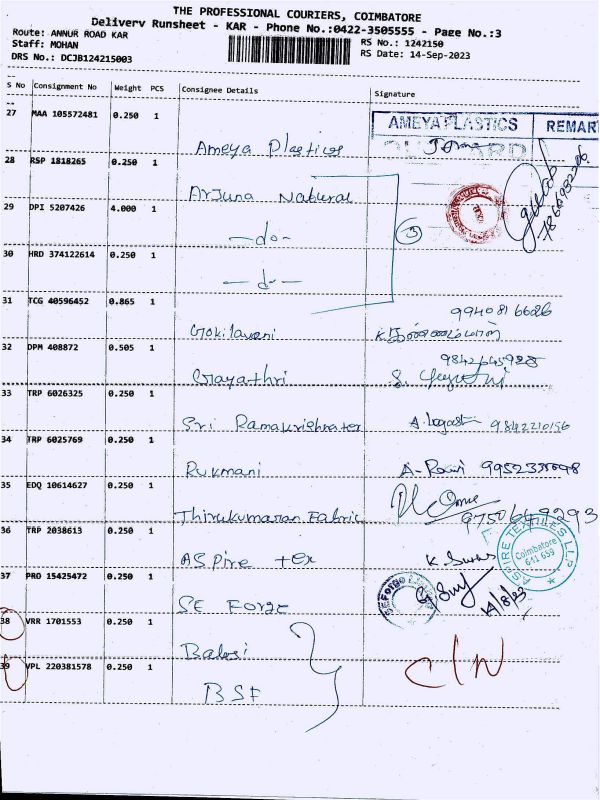 THE PROFESSIONAL COURIERS, COIMBATORE
Delivery Runsheet - KAR - Phone No.:0422-3505555 - Page No.:3
Route: ANNUR ROAD KAR
Staff: MOHAN
DRS No.: DCJB124215003
RS No.: 1242150
RS Date: 14-Sep-2023
S No Consignment No Weight PCS Consignee Details Signature
27 MAA 105572481 0.250 1 Ameya Plastics
AMEYA PLASTICS REMAR
28 RSP 1818265 0.250 1 Arjuna Natural
29 DPI 5207426 4.000 1 —do—
3
30 HRD 374122614 0.250 1 —d—
31 TCG 40596452 0.865 1 Gokilavani
9940816626
32 DPM 408872 0.505 1 Gayathri
33 TRP 6026325 0.250 1 Sri Ramakrishnatex
9842210156
34 TRP 6025769 0.250 1 Rukmani
35 EDQ 10614627 0.250 1 Thirukumaran Fabric
9750649293
36 TRP 2038613 0.250 1 ASpire tex
ASPIRE TEXTILES LLP
Coimbatore
641 659
37 PRO 15425472 0.250 1 SE Forge
SE Forge
38 VRR 1701553 0.250 1 Balaji
39 VPL 220381578 0.250 1 BSF
C/N